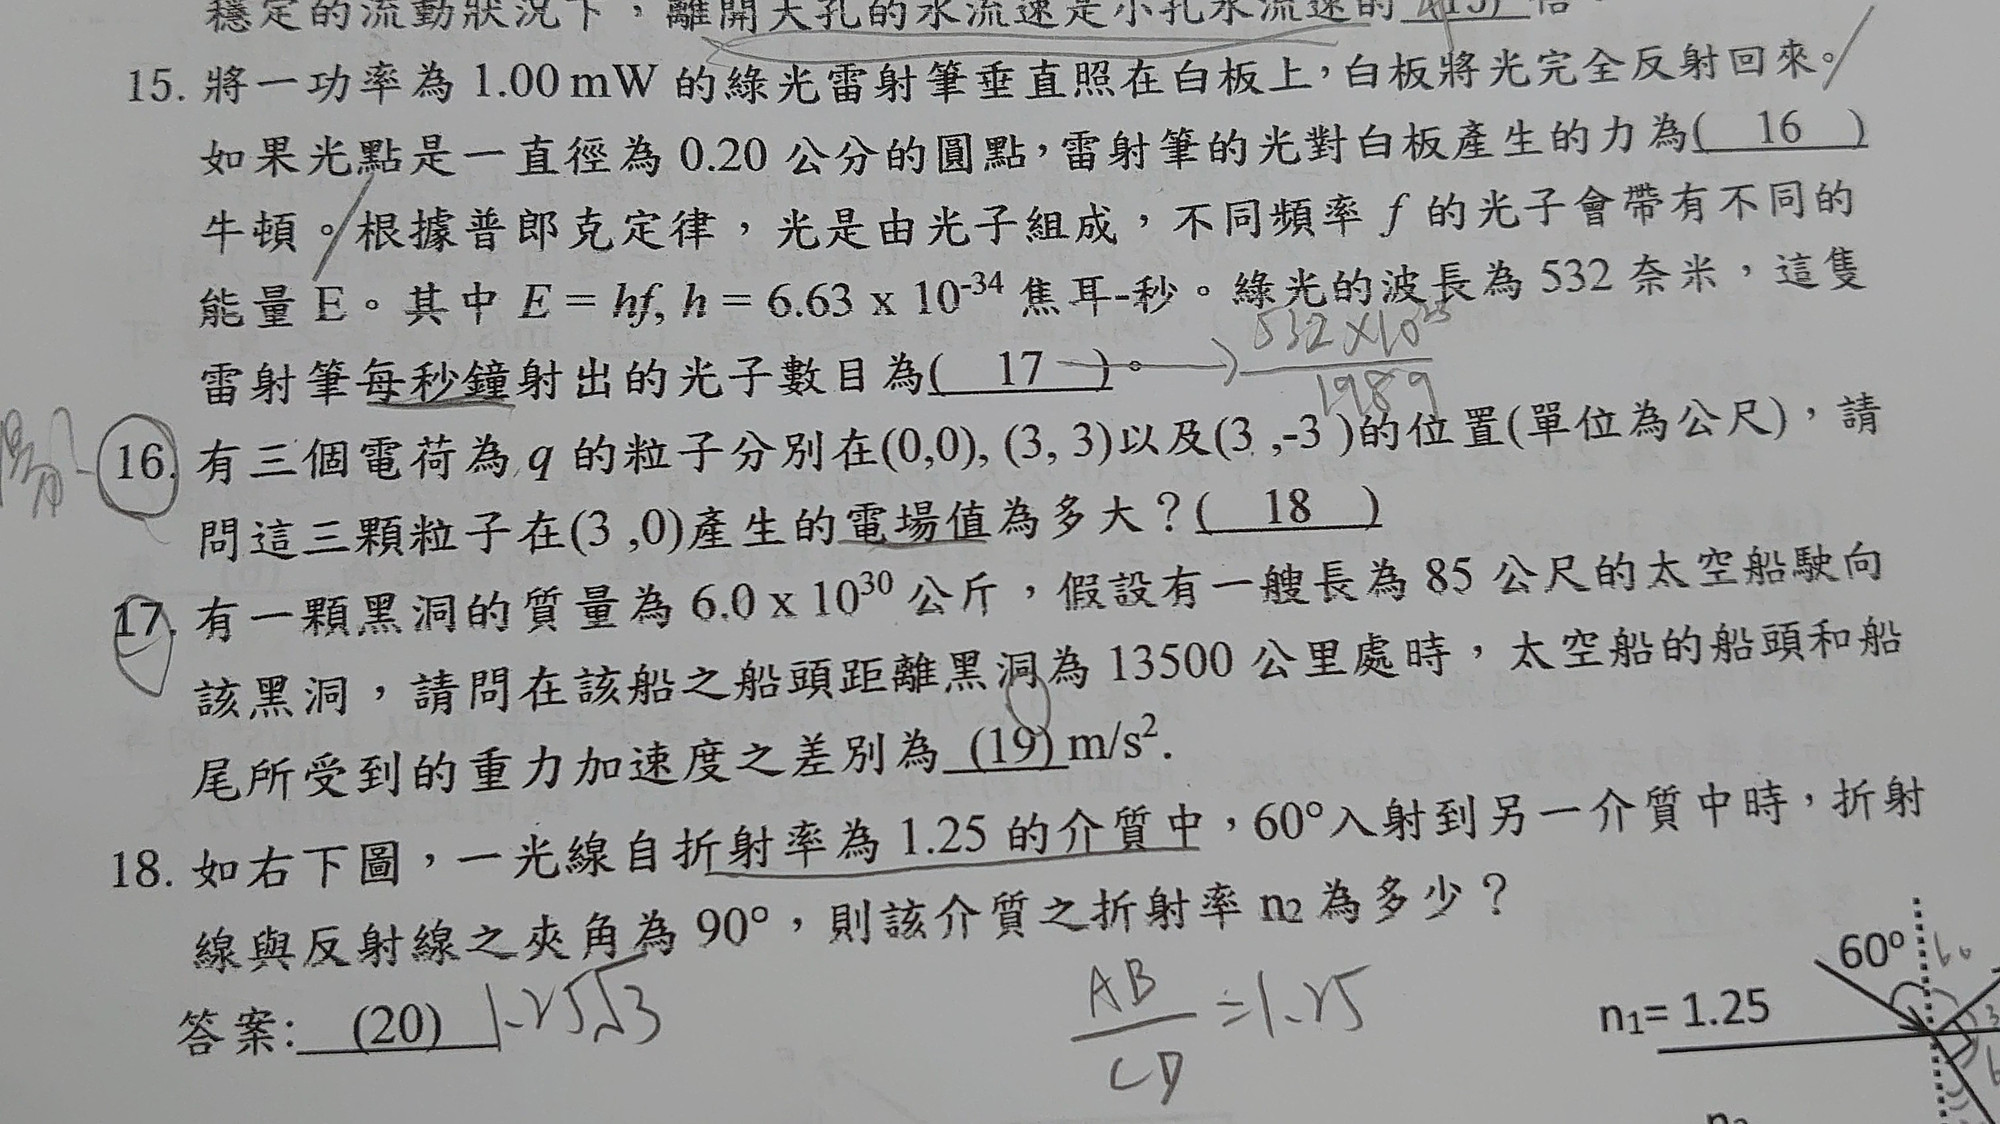 穩定的流動狀況下，離開大孔的水流速是小孔水流速的 (15) 倍。
15. 將一功率為 1.00 mW 的綠光雷射筆垂直照在白板上，白板將光完全反射回來。
如果光點是一直徑為 0.20 公分的圓點，雷射筆的光對白板產生的力為( 16 )
牛頓。根據普郎克定律，光是由光子組成，不同頻率 f 的光子會帶有不同的
能量 E。其中 E = hf, h = 6.63 x 10-34 焦耳-秒。綠光的波長為 532 奈米，這隻
雷射筆每秒鐘射出的光子數目為( 17 )。
532×10
1989
16. 有三個電荷為 q 的粒子分別在(0,0), (3, 3)以及(3 ,-3 )的位置(單位為公尺)，請
問這三顆粒子在(3 ,0)產生的電場值為多大？( 18 )
17. 有一顆黑洞的質量為 6.0 x 1030 公斤，假設有一艘長為 85 公尺的太空船駛向
該黑洞，請問在該船之船頭距離黑洞為 13500 公里處時，太空船的船頭和船
尾所受到的重力加速度之差別為 (19) m/s2.
18. 如右下圖，一光線自折射率為 1.25 的介質中，60°入射到另一介質中時，折射
線與反射線之夾角為 90°，則該介質之折射率 n2 為多少？
答案: (20) 1.25√3
AB
CD
=1.25
60°
60
n1= 1.25